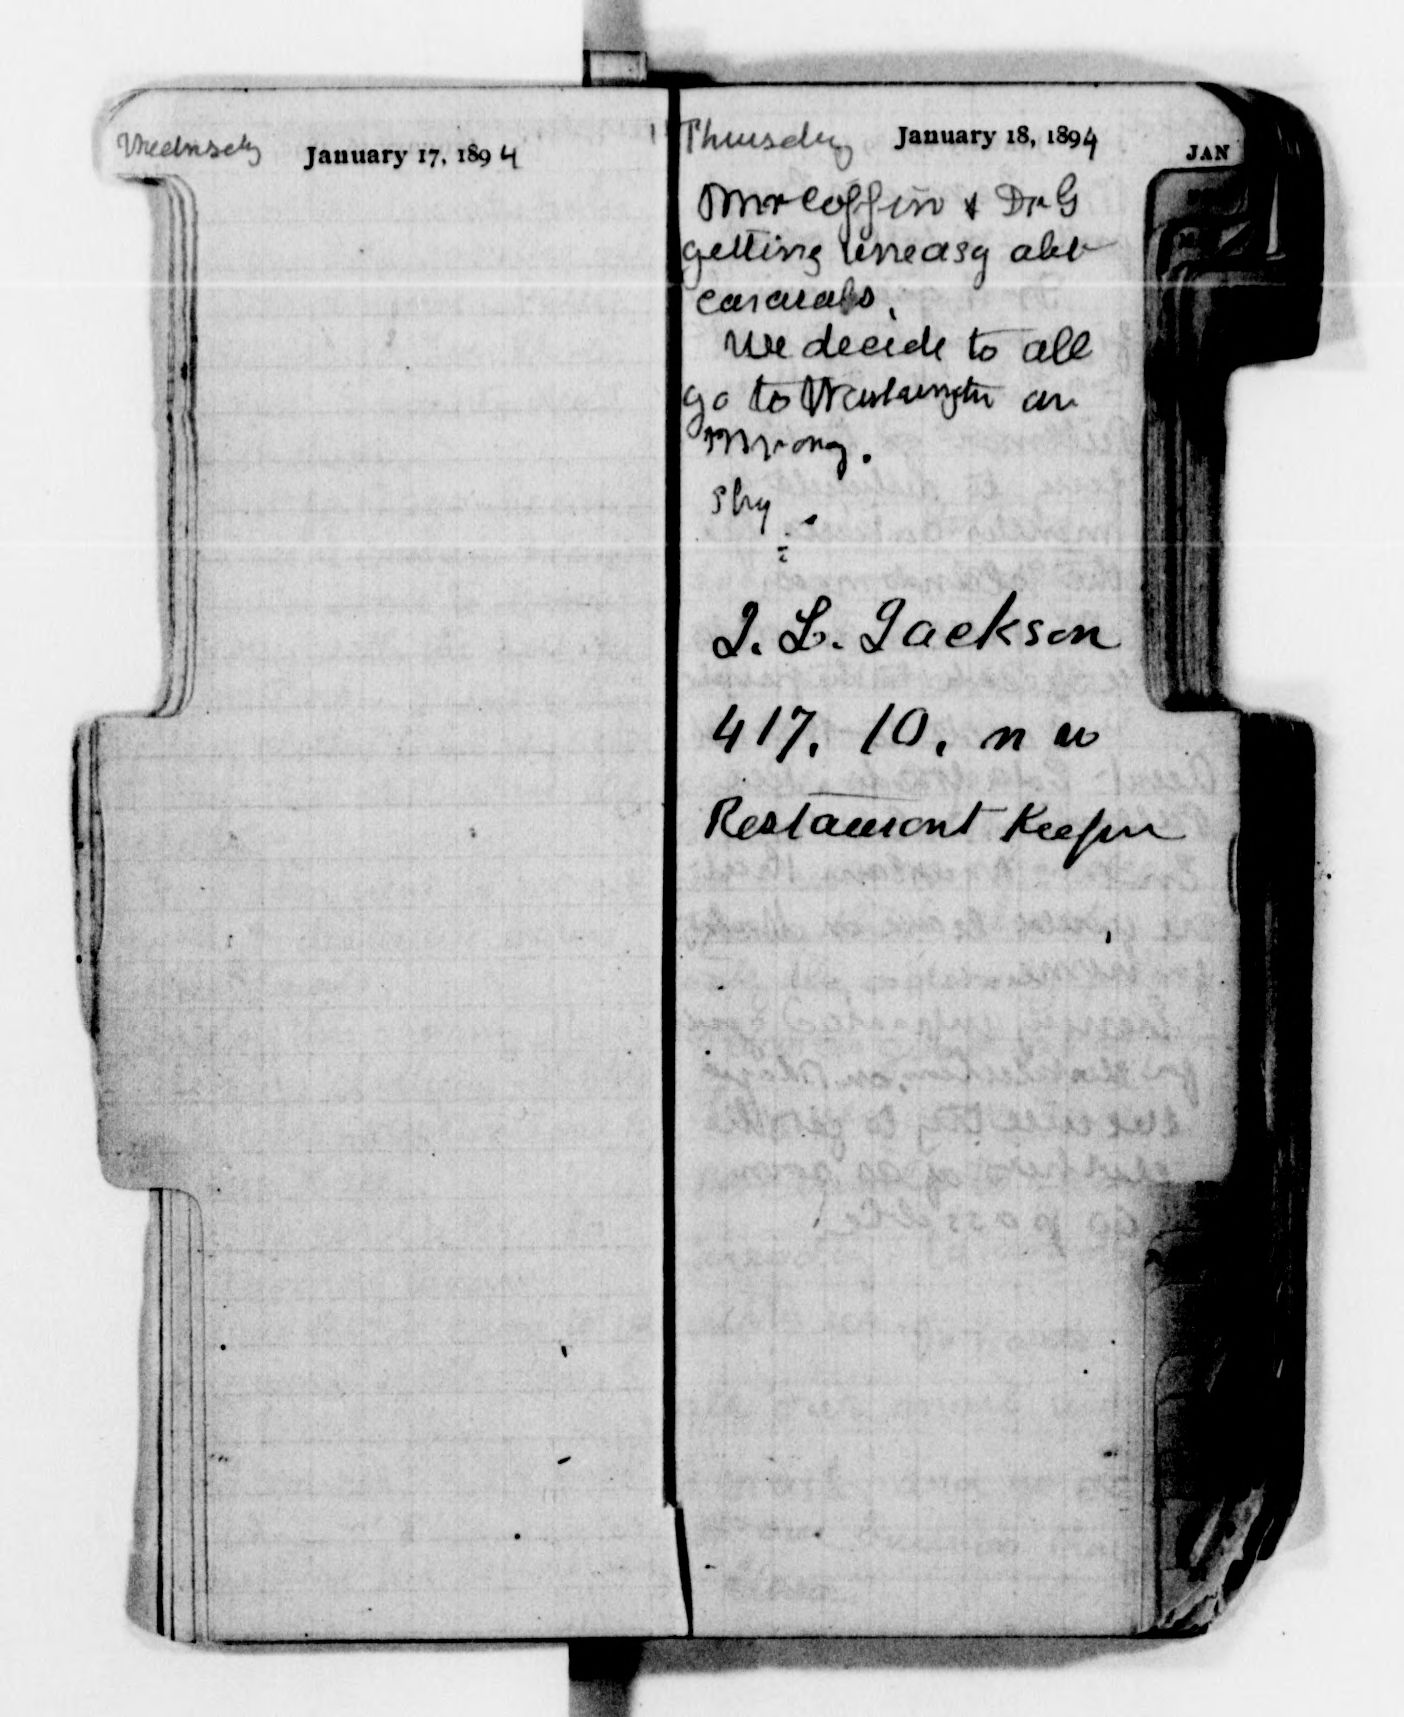 Wednsdy
January 17, 1894
Thursday
January 18, 1894
JAN
Mr Coffin & Dr G
getting uneasy abt
canvass.
We decide to all
go to Washington on
morng.
J. L. Jackson
417. 10. n w
Restaurant Keeper